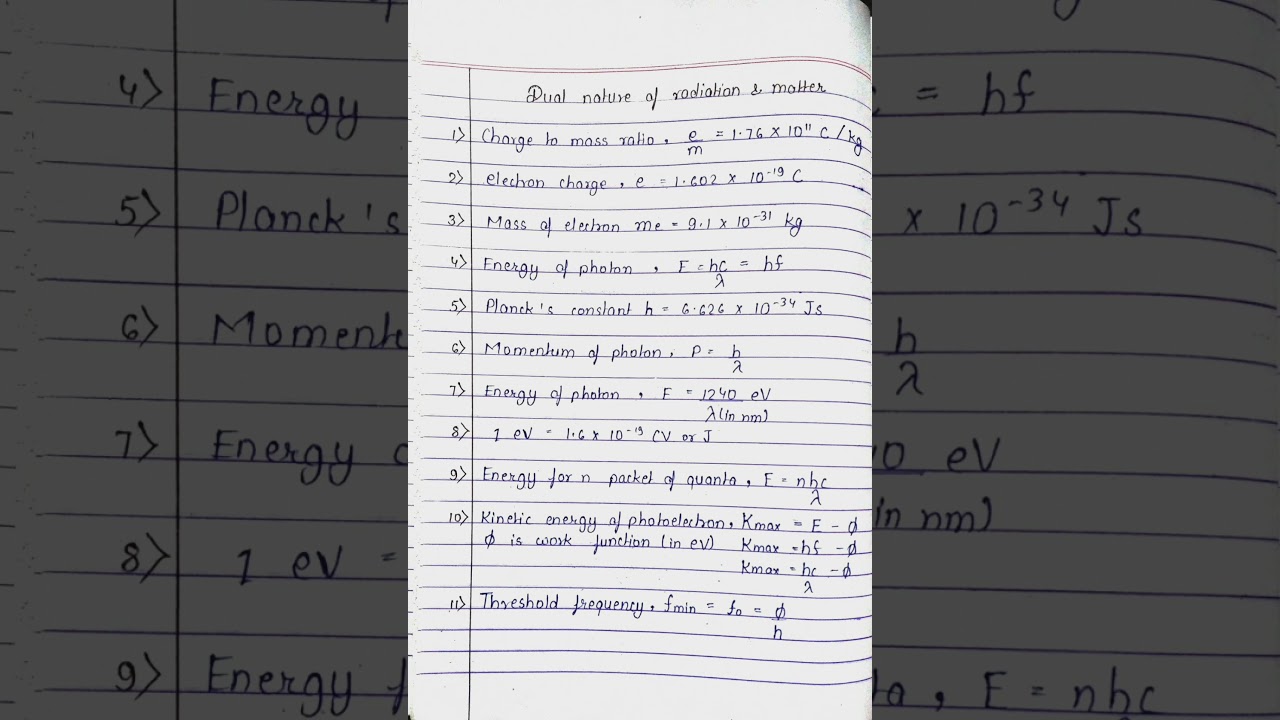 Dual nature of radiation & matter
1) Charge to mass ratio, e/m = 1.76 × 10¹¹ C/kg
2) electron charge, e = 1.602 × 10⁻¹⁹ C
3) Mass of electron me = 9.1 × 10⁻³¹ kg
4) Energy of photon, E = hc/λ = hf
5) Planck's constant h = 6.626 × 10⁻³⁴ Js
6) Momentum of photon, P = h/λ
7) Energy of photon, E = 1240/λ(in nm) eV
8) 1 eV = 1.6 × 10⁻¹⁹ CV or J
9) Energy for n packet of quanta, E = nhc/λ
10) Kinetic energy of photoelectron, Kmax = E - ϕ
ϕ is work function (in eV) Kmax = hf - ϕ
Kmax = hc/λ - ϕ
11) Threshold frequency, fmin = f₀ = ϕ/h
4) Energy
= hf
5) Planck's
× 10⁻³⁴ Js
6) Moment
h/λ
7) Energy
0 eV
in nm)
8) 1 eV =
9) Energy
, E = nhc